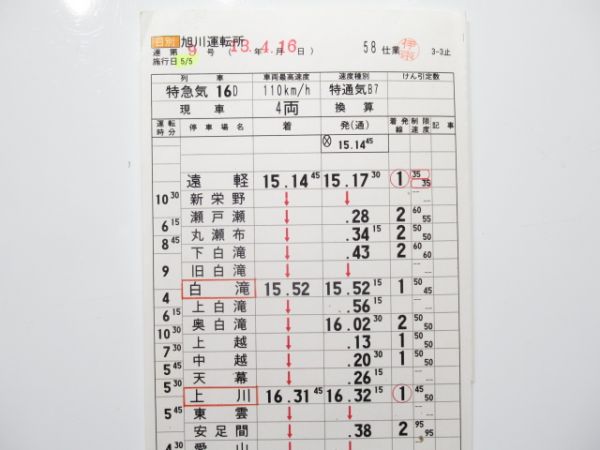 日別 旭川運転所
運第 9 号 ( 13 年 4 月 16 日 ) 58 仕業 伊東
施行日 5/5 3-3止
列車 車両最高速度 速度種別 けん引定数
特急気 16D 110km/h 特通気B7
現車 4両 換算
運転時分 停車場名 着 発(通) 着発線 制限速度 記事
⊗ 15.14 45
遠軽 15.14 45 15.17 30 1 35 35
10 30
新栄野 ↓ ↓
瀬戸瀬 ↓ .28 2 60 55
6 15
丸瀬布 ↓ .34 15 2 50 50
8 45
下白滝 ↓ .43 2 60 60
旧白滝 ↓ ↓
9
白滝 15.52 15.52 15 1 50 45
4
上白滝 ↓ .56 15
6 15
奥白滝 ↓ 16.02 30 2 50 50
10 30
上越 ↓ .13 1 50 50
7 30
中越 ↓ .20 30 1 50 50
5 45
天幕 ↓ .26 15
5 30
上川 16.31 45 16.32 15 1 45 50
東雲 ↓ ↓
5 45
安足間 ↓ .38 2 95 95
愛山 ↓ ↓
4 30